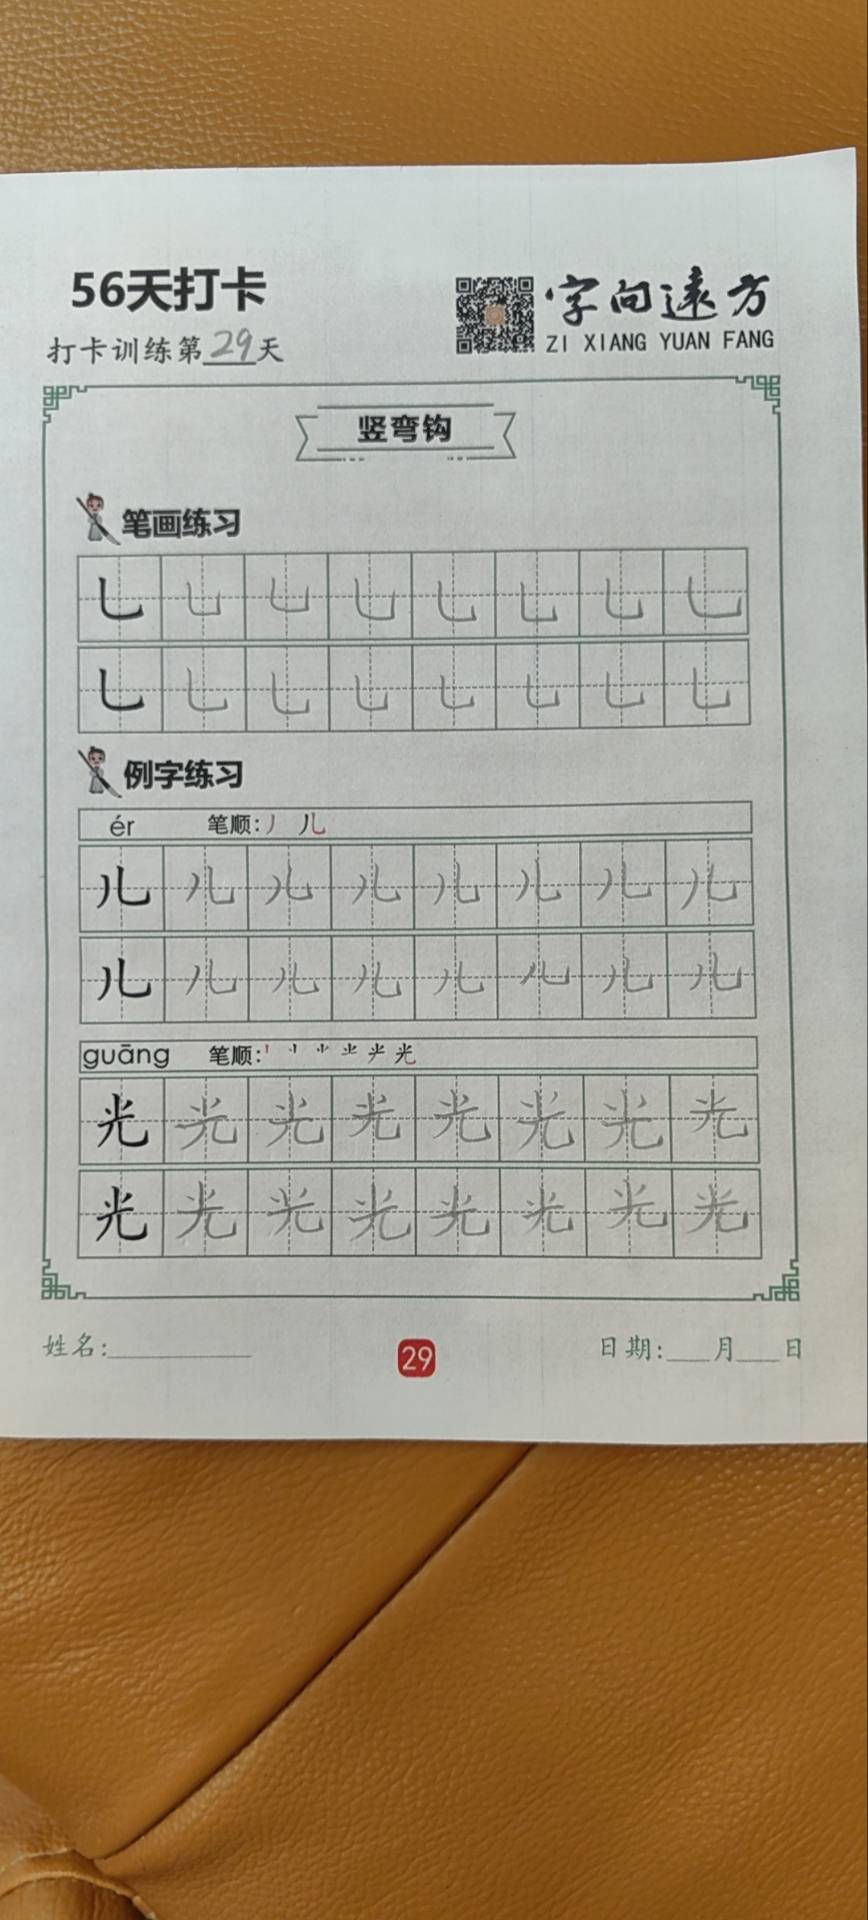 56天打卡
字向遠方
ZI XIANG YUAN FANG
打卡训练第29天
竖弯钩
笔画练习
乚 乚 乚 乚 乚 乚 乚 乚
乚 乚 乚 乚 乚 乚 乚 乚
例字练习
ér 笔顺:丿 儿
儿 儿 儿 儿 儿 儿 儿 儿
儿 儿 儿 儿 儿 儿 儿 儿
guāng 笔顺:光
光 光 光 光 光 光 光 光
光 光 光 光 光 光 光 光
姓名:
29
日期: 月 日